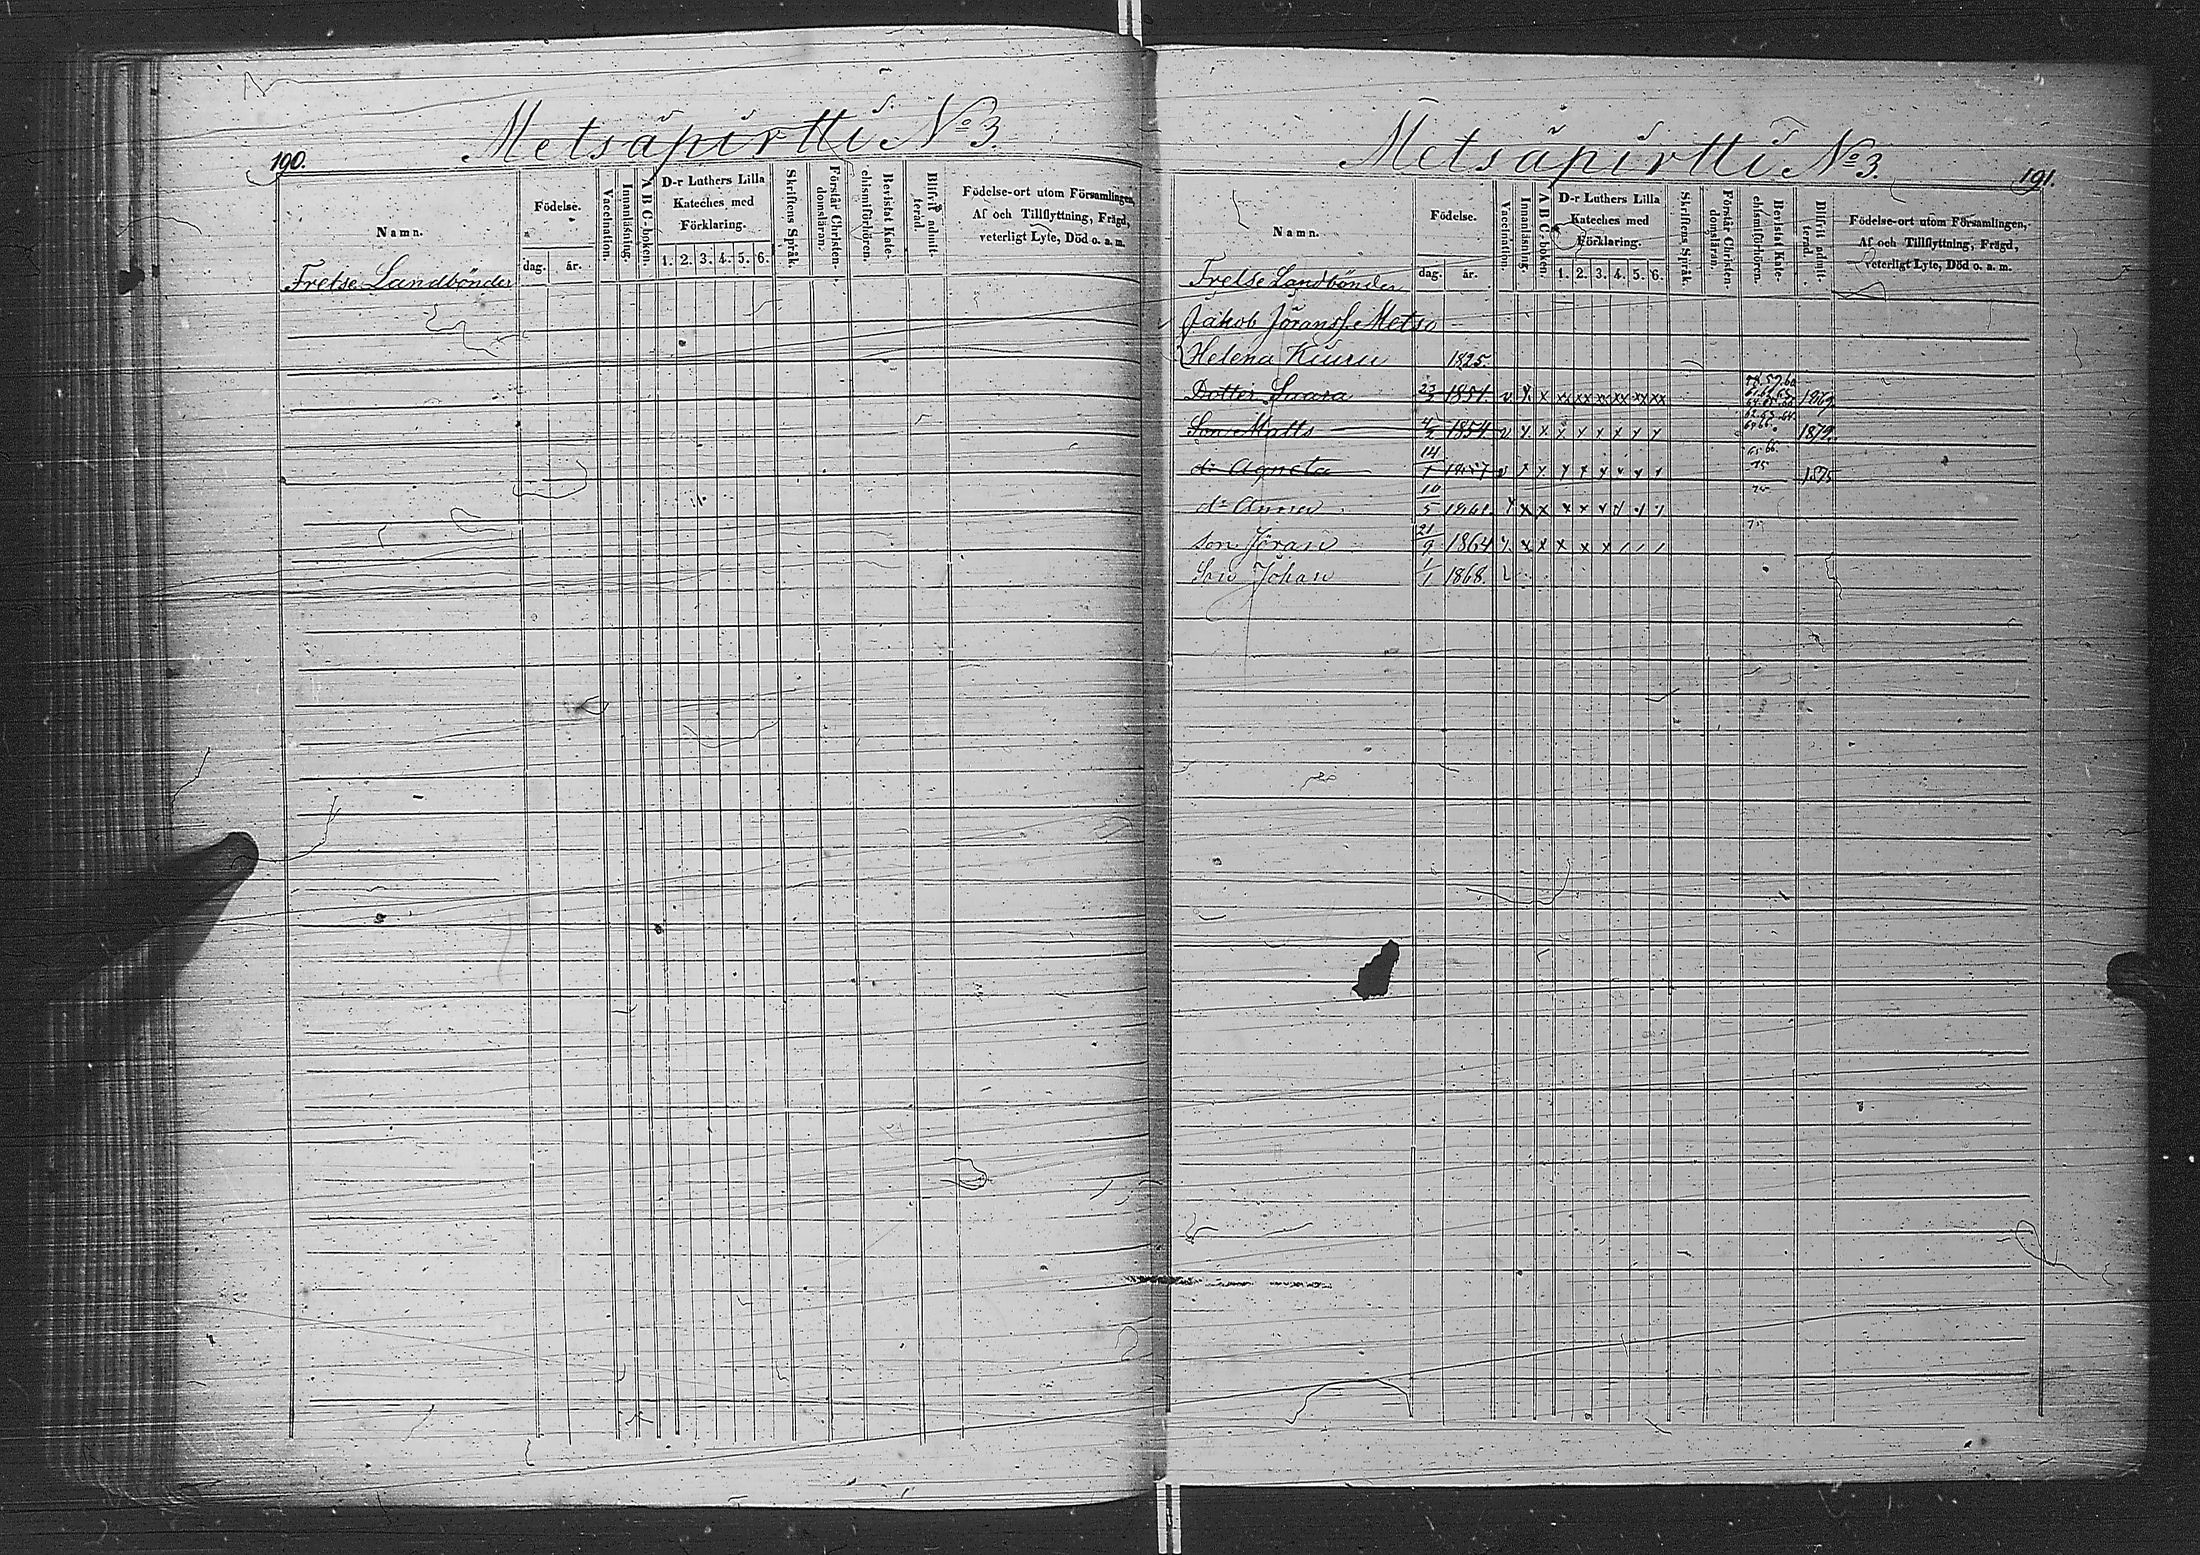 Metsäpirtti No 3.
190.
Namn.
Födelse.
dag.
år.
Vaccination.
Innanläsning.
A B C-boken.
D-r Luthers Lilla
Kateches med
Förklaring.
1. 2. 3. 4. 5. 6.
Skriftens Språk.
Förstår Christen-
domsläran.
Bevistat Kate-
chismiförhören.
Blifvit admit-
terad.
Födelse-ort utom Församlingen,
Af och Tillflyttning, Frägd,
veterligt Lyte, Död o. a. m.
Frelse Landbönder
Metsäpirtti No 3.
191.
Namn.
Födelse.
dag.
år.
Vaccination.
Innanläsning.
A B C-boken.
D-r Luthers Lilla
Kateches med
Förklaring.
1. 2. 3. 4. 5. 6.
Skriftens Språk.
Förstår Christen-
domsläran.
Bevistat Kate-
chismiförhören.
Blifvit admit-
terad.
Födelse-ort utom Församlingen,
Af och Tillflyttning, Frägd,
veterligt Lyte, Död o. a. m.
Frelse Landbönder
Jakob Jöransf. Metso
Helena Kiuru 1825.
Dotter Saara 1851. v x x xx xx xx xx xx xx 1869
Son Matts 1854 v x x x x x x x x 1872.
dr Agneta 14/1 1857 v x x x x x x x x 75 1875
dr Anna 10/5 1861. x x x x x x x x x 75
son Jöran 21/9 1864 x x x x x x / / / 75
Son Johan 1/1 1868. v